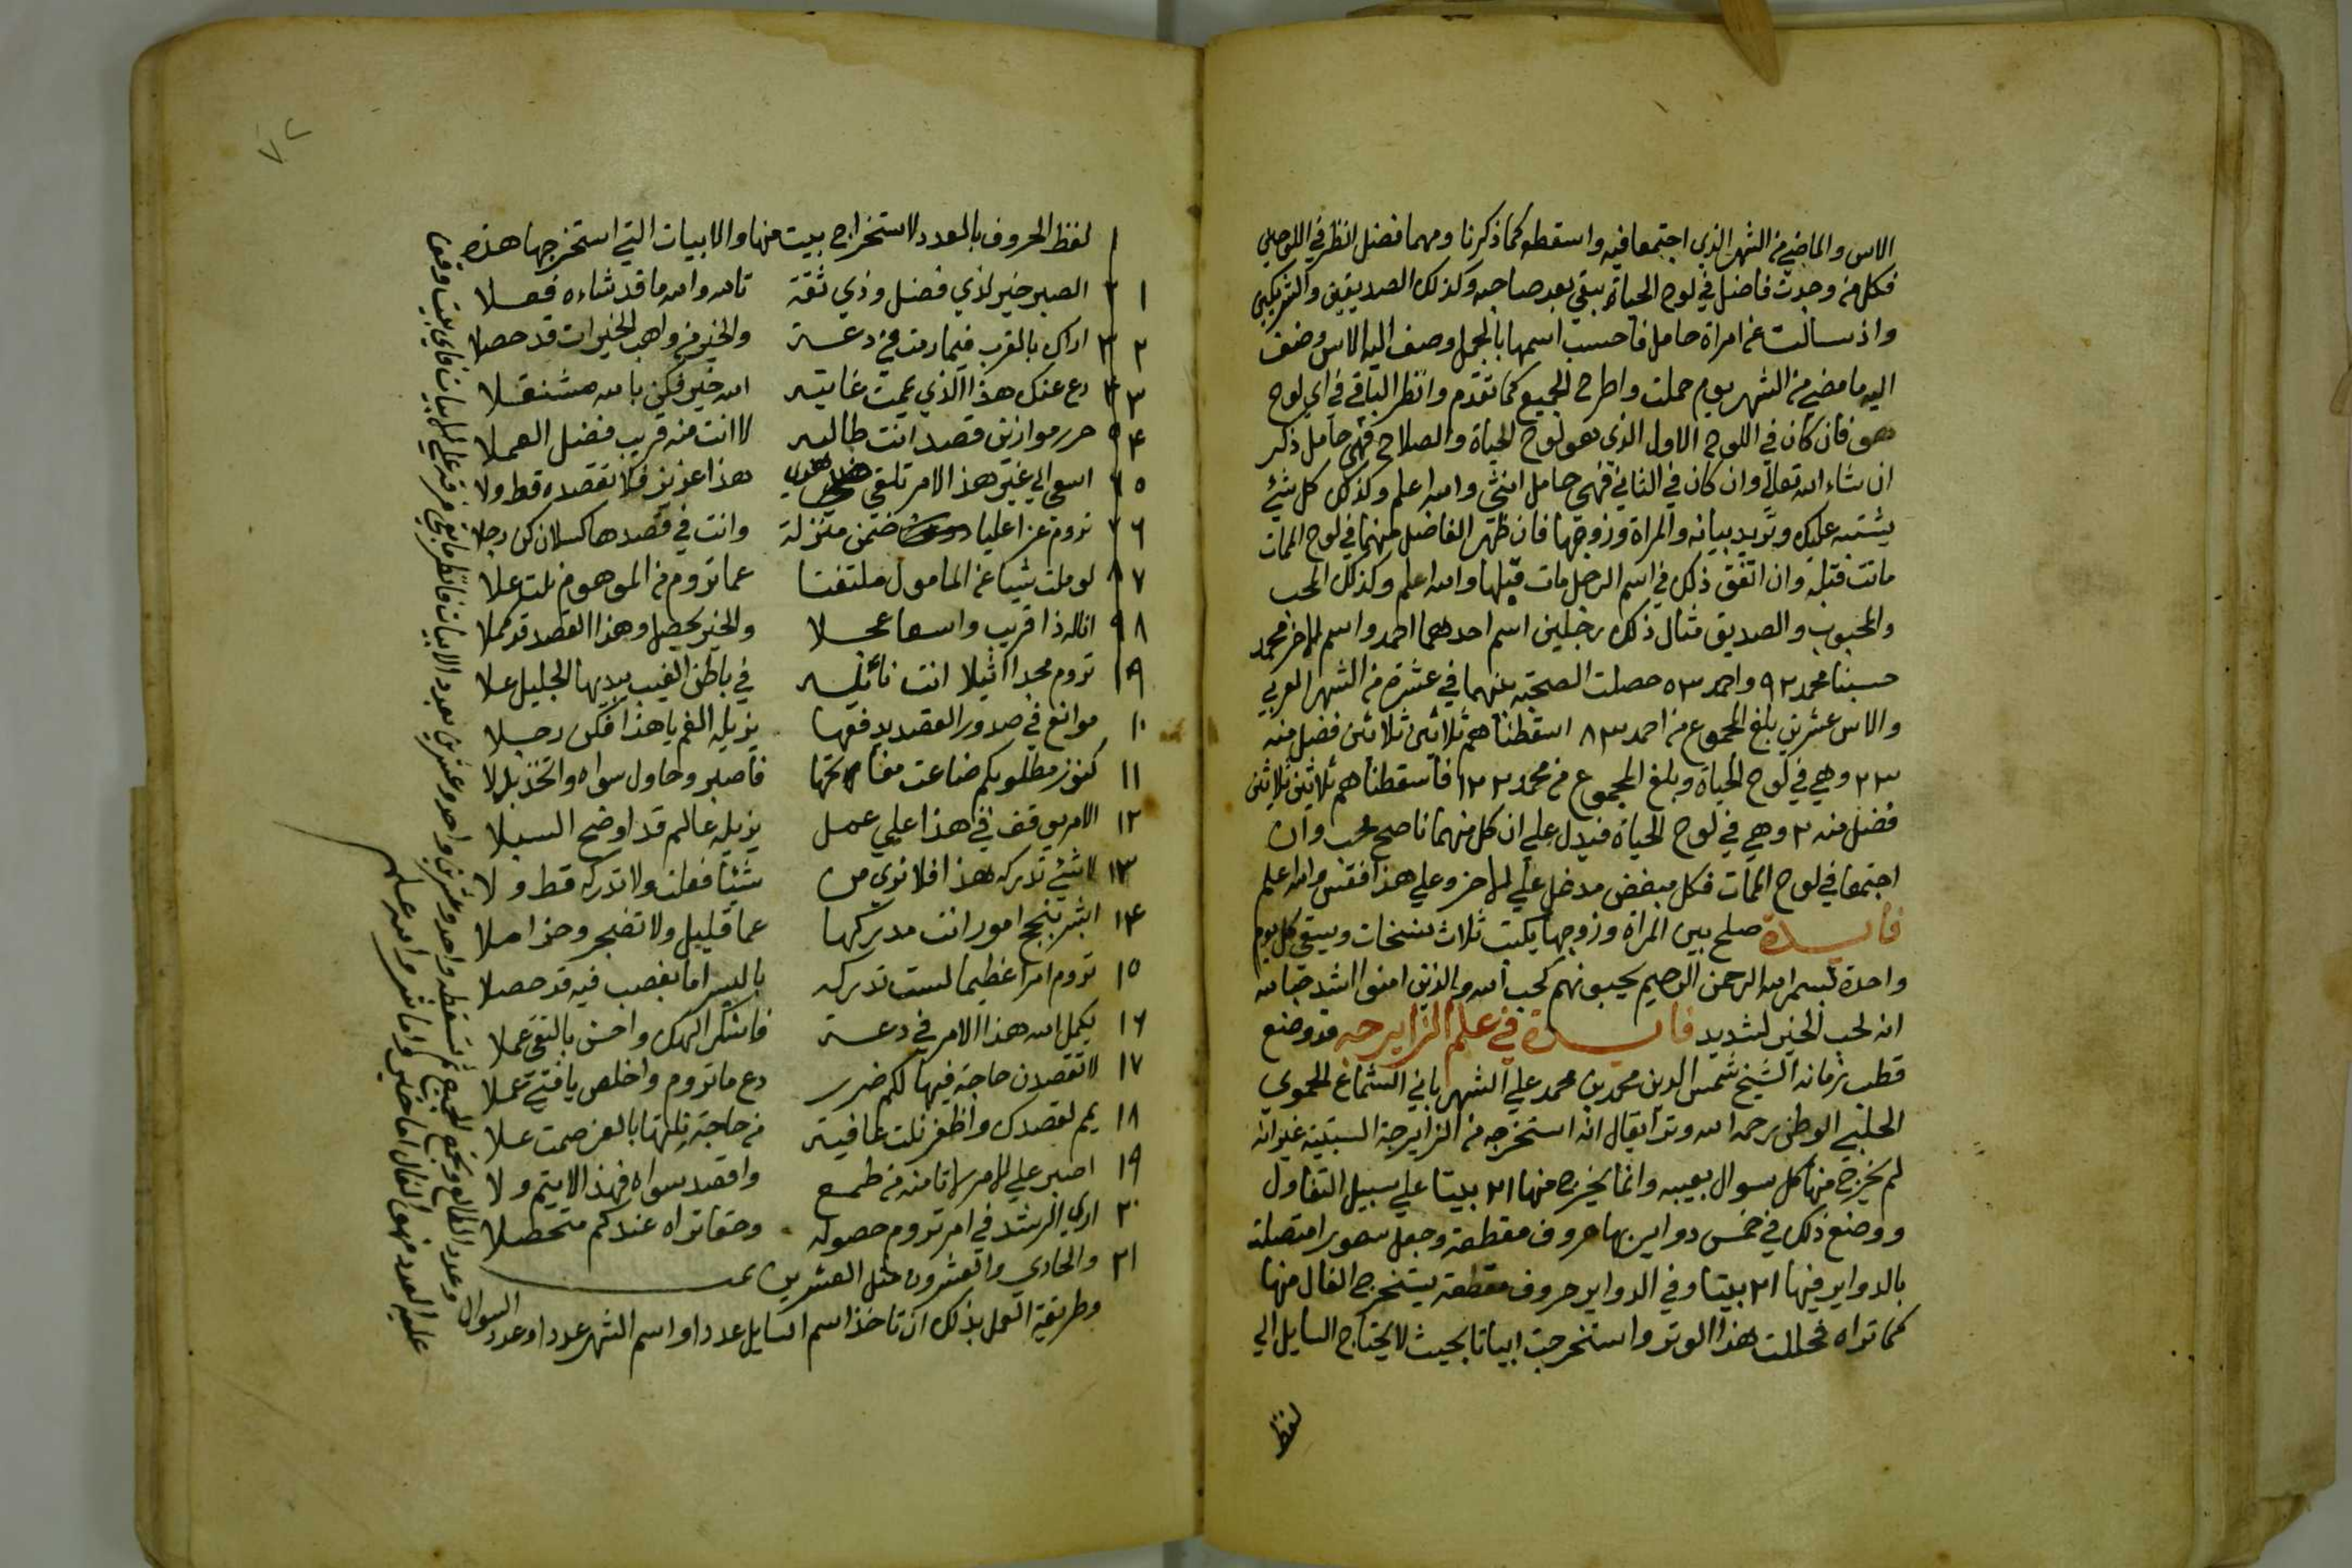 الاس والماضي من الشهر الذي اجتمعا فيه واسقطه كما ذكرنا ومهما فضل انظر في اللوحين
فكل من وجدت فاضل في لوح الحياة يبقي بعد صاحبه وكذلك الصديقين والشريكين
واذ سالت عن امراة حامل فاحسب اسمها بالجمل وصف اليه الاس وضف
اليه ما مضي من الشهر يوم حملت واطرح الجميع كما تقدم وانظر الباقي في اي لوح
هو فان كان في اللوح الاول الذي هو لوح الحياة والصلاح فهي حامل ذكر
ان شاء الله تعالي وان كان في الثاني فهي حامل انثي والله اعلم وكذلك كل شئ
يشتبه عليك وتريد بيانه والمراة وزوجها فان ظهر الفاضل منهما في لوح الممات
ماتت قبله وان اتفق ذلك في اسم الرجل مات قبلها والله اعلم وكذلك المحب
والمحبوب والصديق مثال ذلك رجلين اسم احدهما احمد واسم الاخر محمد
حسبنا محمد ٩٢ واحمد ٥٣ حصلت الصحبة بينهما في عشرة من الشهر العربي
والاس عشرين بلغ المجموع من احمد ٨٣ اسقطناهم ثلاثين ثلاثين فضل منه
٢٣ وهي في لوح الحياة وبلغ المجموع من محمد ١٢٢ فاسقطناهم ثلاثين ثلاثين
فضل منه ٢ وهي في لوح الحياة فيدل علي ان كل منهما ناصح محب وان
اجتمعا في لوح الممات فكل مبغض مدخل علي الاخر وعلي هذا فقس والله اعلم
فايدة صلح بين المراة وزوجها يكتب ثلاث نسخات ويسقي كل يوم
واحدة بسم الله الرحمن الرحيم يحبونهم كحب الله والذين امنوا اشد حبا لله
انه لحب الخير لشديد فايدة في علم الزايرجه قد وضع
قطب زمانه الشيخ شمس الدين محمد بن محمد علي الشهر بابي الشماع الحموي
الحلبي الوطن رحمه الله وترا يقال انه استخرجه من الزايرجة السبتية غير انه
لم يخرج منها كل سوال بعيبه وانما يخرج منها ٢١ بيتا علي سبيل التفاول
ووضع ذلك في خمس دواير بها حروف مقطعة وجعل سعور امتصلة
بالدواير فيها ٢١ بيتا وفي الدواير حروف مقطعة يستخرج الفال منها
كما تراه فحللت هذا الوتر واستخرجت ابياتا بحيث لا يحتاج السايل الي
لفظ
٧٢
لفظ الحروف بالعدد لاستخراج بيت منها والابيات التي استخرجها هذه
١ الصبر خير لذي فضل وذي ثقة تالله والله ما قد شاءه فعلا
٢ اراك بالقرب فيما رمت في دعة والخير من واهب الخيرات قد حصلا
٣ دع عنك هذا الذي عميت غايته الله خير فكن بالله مشتغلا
٤ حرر موازين قصد انت طالبه لا انت منه قريب فضل العملا
٥ اسعي الي غير هذا الامر تلقي هذا عزيز فلا تقصده قط ولا
٦ تروم عزا عليا ضمن منزلة وانت في قصدها كسلان كن رجلا
٧ لو ملت شيا عن المامول ملتفتا عما تروم من الموهوم نلت علا
٨ اناله ذا قريب واسعا عجلا والخير يحصل وهذا القصد قد كملا
٩ تروم مجدا اثيلا انت نائله في باطن الغيب يبديها الجليل علا
١٠ موانع في صدور القصد يدفعها يزيله الغم يا هذا فكن رجلا
١١ كنوز مطلوبكم ضاعت مفاتحها فاصبر وحاول سواه واتخذ بدلا
١٢ الامر يوقف في هذا علي عمل يزيله عالم قد اوضح السبلا
١٣ لا شئ تدركه هذا فلا نوي من شيئا فعلت ولا تدركه قط ولا
١٤ ابشر بنجح امور انت مدركها عما قليل ولا تضجر وخذ املا
١٥ تروم امرا عظيما لست تدركه باليسر اما بغصب فيه قد حصلا
١٦ يكمل الله هذا الامر في دعة فاشكر الهك واحسن بالتقي عملا
١٧ لا تقصدن حاجة فيها لكم ضرر دع ما تروم واخلص يا فتي عملا
١٨ يمم لقصدك واظفر نلت عافية من حاجة نلتها بالعز صمت علا
١٩ اصبر علي الامر لا تامنه من طمع واقصد سواه فهذا لا يتم ولا
٢٠ اري الرشد في امر تروم حصوله وحقا تراه عندكم متحصلا
٢١ والحادي والعشرون مثل العشرين
وطريقة العمل بذلك ان تاخذ اسم السايل عددا واسم الشهر عددا وعدد السوال
وعدد الطالع وتجمع الجميع ثم تسقطه واحد وعشرين واحد وعشرين بعدد الابيات فانظر ما بقي فرقه علي الابيات فاي بيت وقف
عليه العدد فهو الفال اما خير واما شر والله اعلم